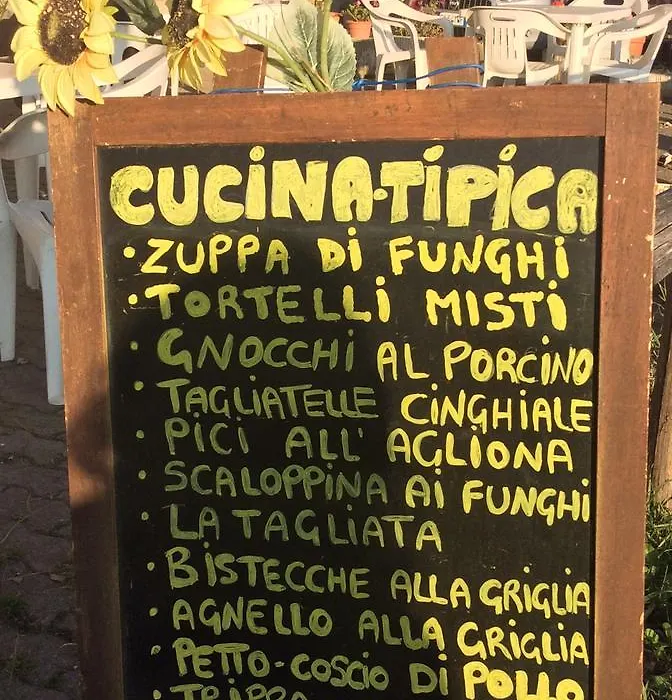 CUCINA·TIPICA
• ZUPPA DI FUNGHI
• TORTELLI MISTI
• GNOCCHI AL PORCINO
• TAGLIATELLE CINGHIALE
• PICI ALL' AGLIONA
• SCALOPPINA AI FUNGHI
• LA TAGLIATA
• BISTECCHE ALLA GRIGLIA
• AGNELLO ALLA GRIGLIA
• PETTO-COSCIO DI POLLO
• TRIPPA